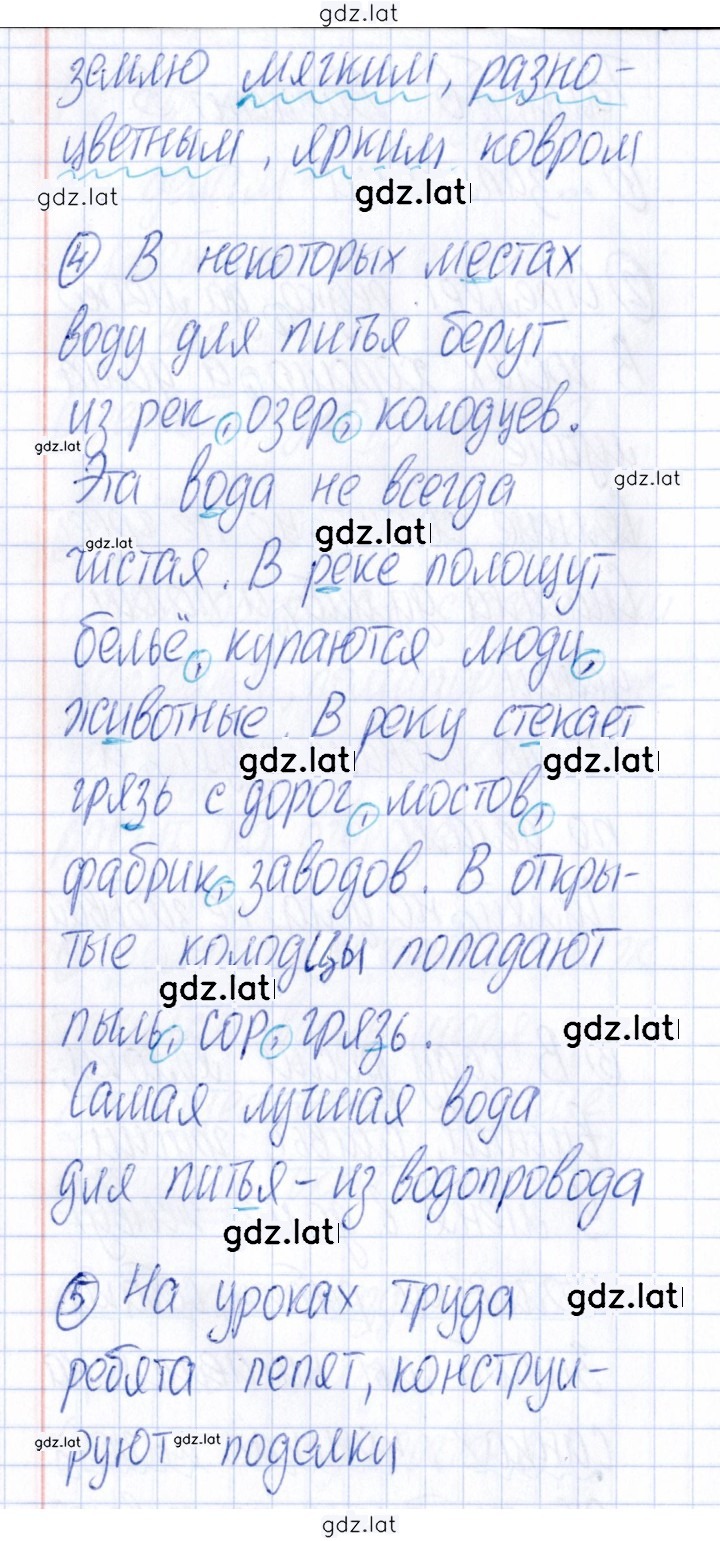 gdz.lat
землю мягким, разно-
цветным, ярким ковром
gdz.lat gdz.lat
④ В некоторых местах
воду для питья берут
из рек, озер, колодцев.
gdz.lat
Эта вода не всегда
gdz.lat
gdz.lat gdz.lat
чистая. В реке полощут
бельё, купаются люди,
животные. В реку стекает
gdz.lat gdz.lat
грязь с дорог, мостов,
фабрик, заводов. В откры-
тые колодцы попадают
gdz.lat
пыль, сор, грязь.
gdz.lat
Самая лучшая вода
для питья - из водопровода
gdz.lat
⑤ На уроках труда
gdz.lat
ребята лепят, конструи-
gdz.lat gdz.lat
руют поделки
gdz.lat